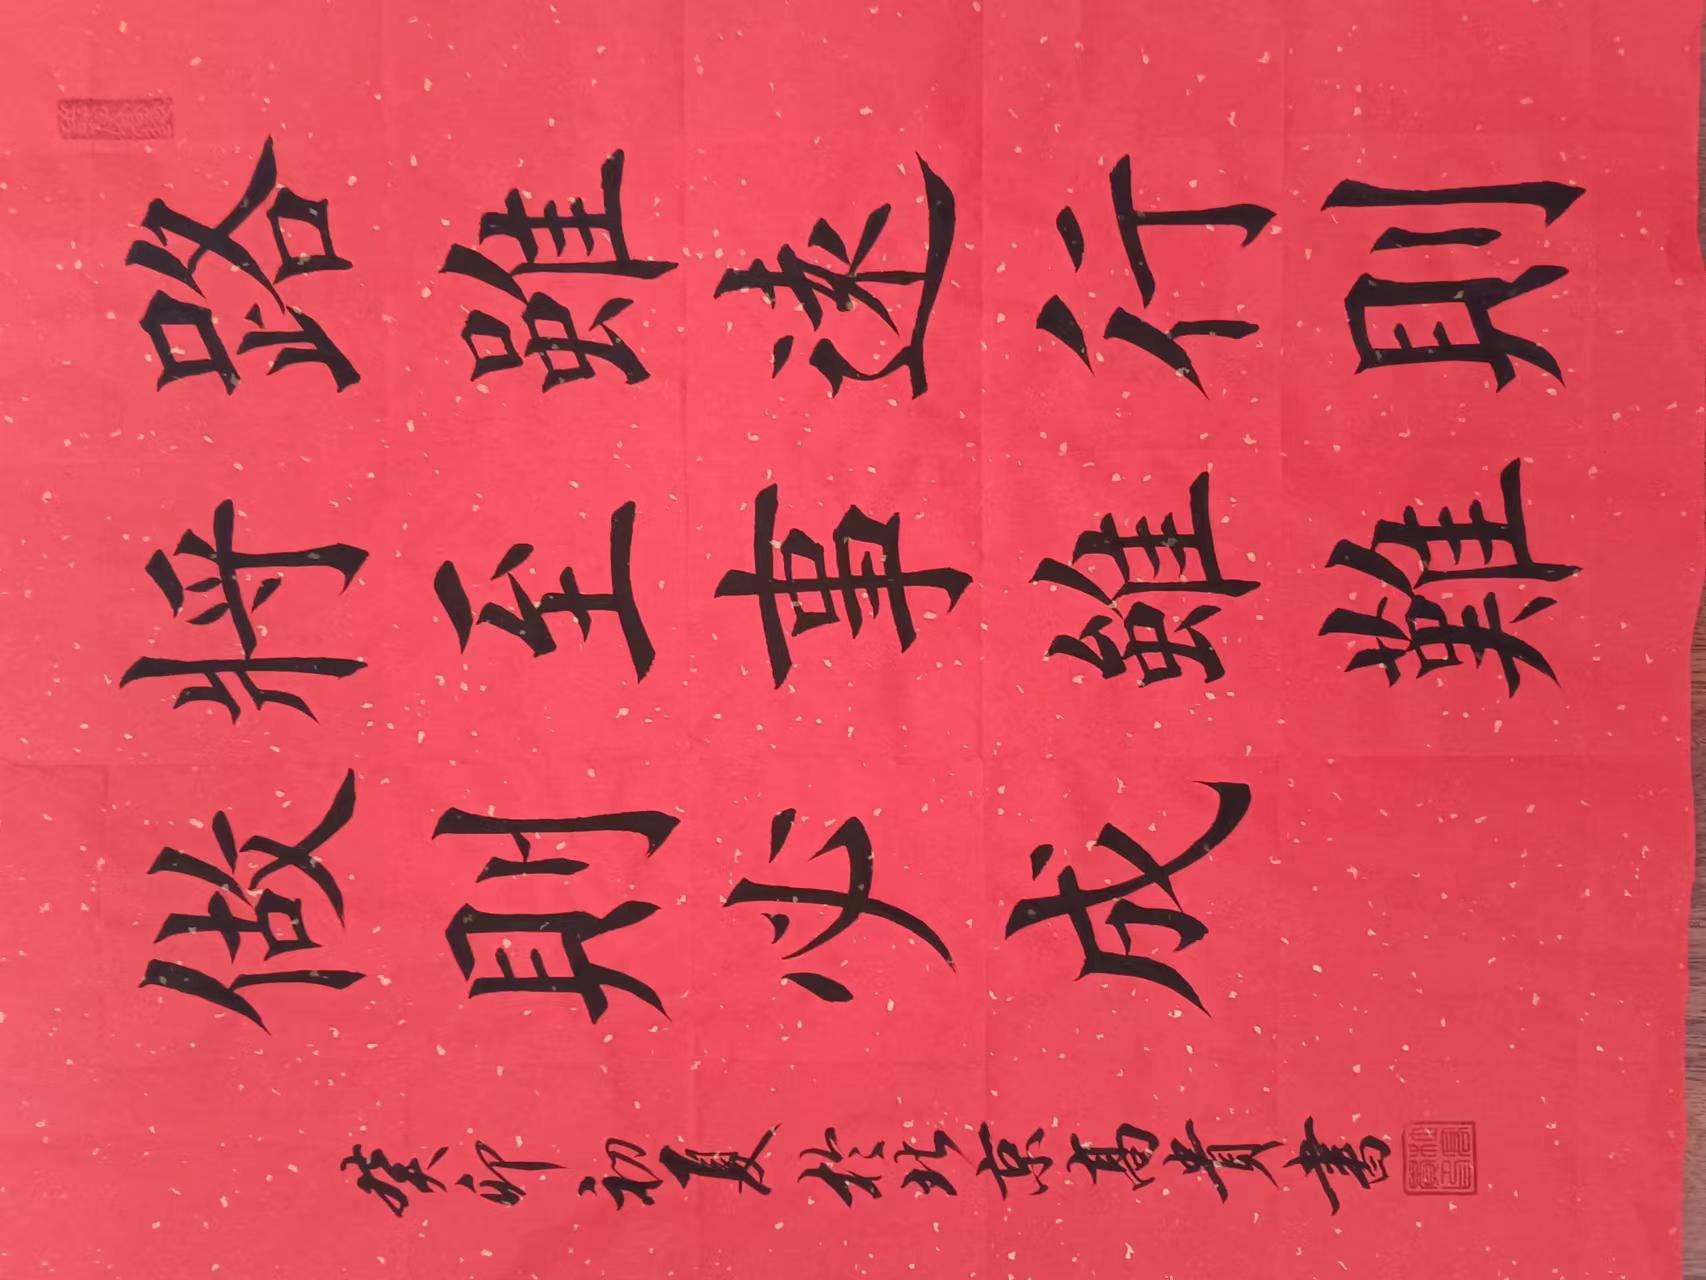 路雖遠行則
將至事雖難
做則必成
癸卯初夏於北京書